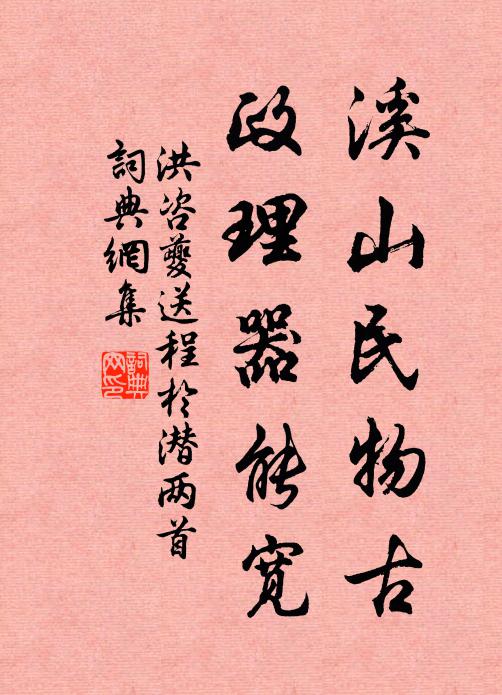 溪山民物古
政理器能寬
洪咨夔送程於潜两首
詞典網集
詞典網印